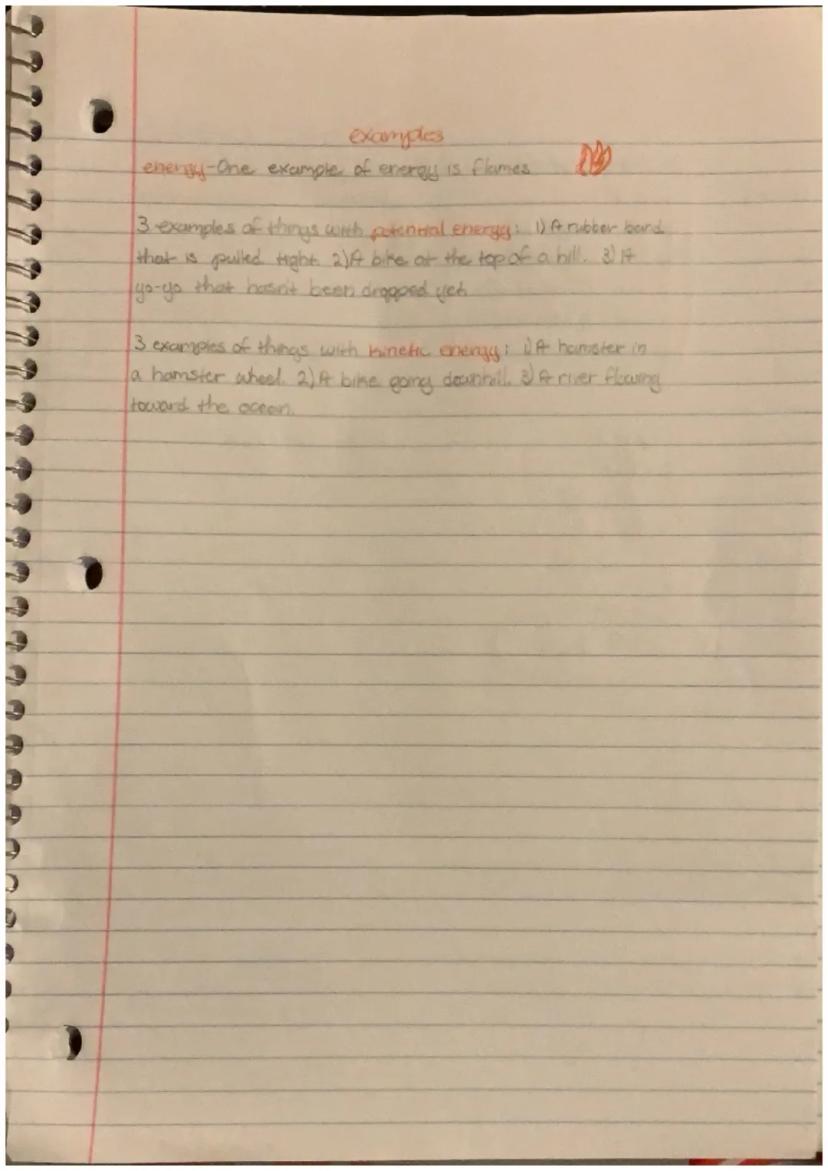 examples
energy-One example of energy is flames
3 examples of things with potential energy: 1) A rubber band
that is pulled tight. 2) A bike at the top of a hill. 3) A
yo-yo that hasn't been dropped yet.
3 examples of things with kinetic energy: 1) A hamster in
a hamster wheel. 2) A bike going downhill. 3) A river flowing
toward the ocean.